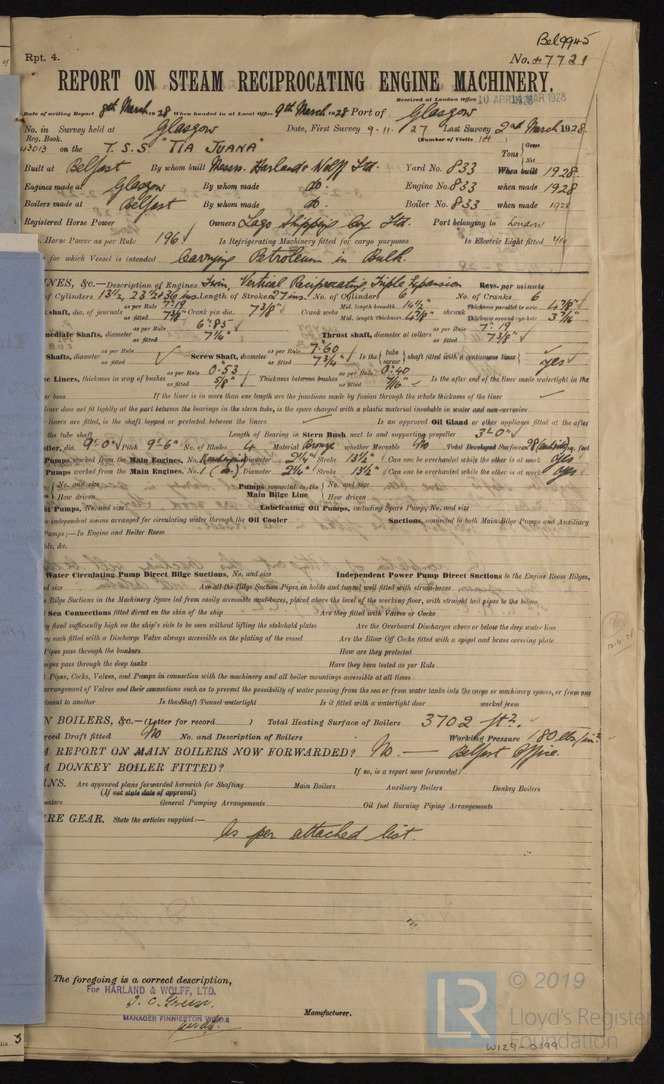 Bel 9945
Rpt. 4.
No. 47721
REPORT ON STEAM RECIPROCATING ENGINE MACHINERY.
Received at London Office
14 MAR 1928
Date of writing Report 8th March 1928 When handed in at Local Office 9th March 1928 Port of Glasgow
No. in Survey held at Glasgow Date, First Survey 9-11-27 Last Survey 2nd March 1928
Reg. Book. (Number of Visits
43013 on the T.S.S. "TIA JUANA" Tons Gross Net
Built at Belfast By whom built Messrs. Harland & Wolff Ltd. Yard No. 833 When built 1928
Engines made at Glasgow By whom made do. Engine No. 833 when made 1928
Boilers made at Belfast By whom made do. Boiler No. 833 when made 1928
Registered Horse Power Owners Lago Shipping Coy Ltd. Port belonging to London
Horse Power as per Rule 196 Is Refrigerating Machinery fitted for cargo purposes Is Electric Light fitted
for which Vessel is intended Carrying Petroleum in Bulk.
NES, &c.—Description of Engines Twin, Vertical Reciprocating, Triple Expansion Revs. per minute
of Cylinders 13½, 23½ & 36 ins. Length of Stroke 27 ins. No. of Cylinders 6 No. of Cranks 6
shaft, dia. of journals as per Rule 7.19 as fitted 7⅜" Crank pin dia. 7⅜" Crank webs Mid. length breadth Mid. length thickness 4⅞" shrunk Thickness parallel to axis 4⅞" Thickness around eye-hole
mediate Shafts, diameter as per Rule 6.85 as fitted 7¼" Thrust shaft, diameter at collars as per Rule 7.19 as fitted 7⅜"
Shafts, diameter as per Rule as fitted Screw Shaft, diameter as per Rule 7.60 as fitted 7¾" Is the tube screw shaft fitted with a continuous liner yes
Liners, thickness in way of bushes as per Rule 0.53 as fitted ⅝" Thickness between bushes as per Rule 0.40 as fitted 7/16" Is the after end of the liner made watertight in the
boss If the liner is in more than one length are the junctions made by fusion through the whole thickness of the liner
liner does not fit tightly at the part between the bearings in the stern tube, is the space charged with a plastic material insoluble in water and non-corrosive
liners are fitted, is the shaft lapped or protected between the liners Is an approved Oil Gland or other appliance fitted at the after
the tube shaft Length of Bearing in Stern Bush next to and supporting propeller 3'-0"
dia. 9'-0" Pitch 9'-6" No. of Blades 4 Material Bronze whether Moveable No Total Developed Surface 28 sq. feet
Pumps worked from the Main Engines, No. Diameter 2¼" Stroke 13½" Can one be overhauled while the other is at work yes
Pumps worked from the Main Engines, No. Diameter 2¼" Stroke 13½" Can one be overhauled while the other is at work yes
No. and size Pumps connected to the Main Bilge Line No. and size
How driven How driven
Pumps, No. and size Lubricating Oil Pumps, including Spare Pump, No. and size
independent means arranged for circulating water through the Oil Cooler Suctions, connected to both Main Bilge Pumps and Auxiliary
Pumps;—In Engine and Boiler Room
&c.
Water Circulating Pump Direct Bilge Suctions, No. and size Independent Power Pump Direct Suctions to the Engine Room Bilges,
size Are all the Bilge Suction Pipes in holds and tunnel well fitted with strum-boxes
Bilge Suctions in the Machinery Space led from easily accessible mud-boxes, placed above the level of the working floor, with straight tail pipes to the bilges
Sea Connections fitted direct on the skin of the ship Are they fitted with Valves or Cocks
fixed sufficiently high on the ship's side to be seen without lifting the stokehold plates Are the Overboard Discharges above or below the deep water line
each fitted with a Discharge Valve always accessible on the plating of the vessel Are the Blow Off Cocks fitted with a spigot and brass covering plate
Pipes pass through the bunkers How are they protected
pipes pass through the deep tanks Have they been tested as per Rule
Pipes, Cocks, Valves, and Pumps in connection with the machinery and all boiler mountings accessible at all times
arrangement of Valves and their connections such as to prevent the possibility of water passing from the sea or from water tanks into the cargo or machinery spaces, or from one
tment to another Is the Shaft Tunnel watertight Is it fitted with a watertight door worked from
N BOILERS, &c.—(Letter for record ) Total Heating Surface of Boilers 3702 ft².
Draft fitted No No. and Description of Boilers Working Pressure 180 lbs/in²
A REPORT ON MAIN BOILERS NOW FORWARDED? No. — Belfast Office.
A DONKEY BOILER FITTED? If so, is a report now forwarded?
NS. Are approved plans forwarded herewith for Shafting Main Boilers Auxiliary Boilers Donkey Boilers
(If not state date of approval)
General Pumping Arrangements Oil fuel Burning Piping Arrangements
RE GEAR. State the articles supplied:—
As per attached list.
The foregoing is a correct description,
For HARLAND & WOLFF, LTD.
MANAGER FINNIESTON WORKS
Manufacturer.
© 2019
LR
Lloyd's Register
Foundation
W129-0199